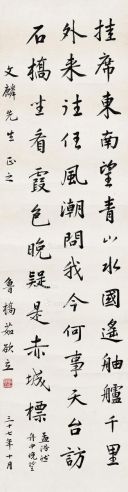 挂席東南望青山水國遙舳艫千里
外来往任風潮問我今何事天台訪
石橋坐看霞色晚疑是赤城標
孟浩然
舟中晚望
文麟先生正之
魯橋茹欲立
三十七年十月